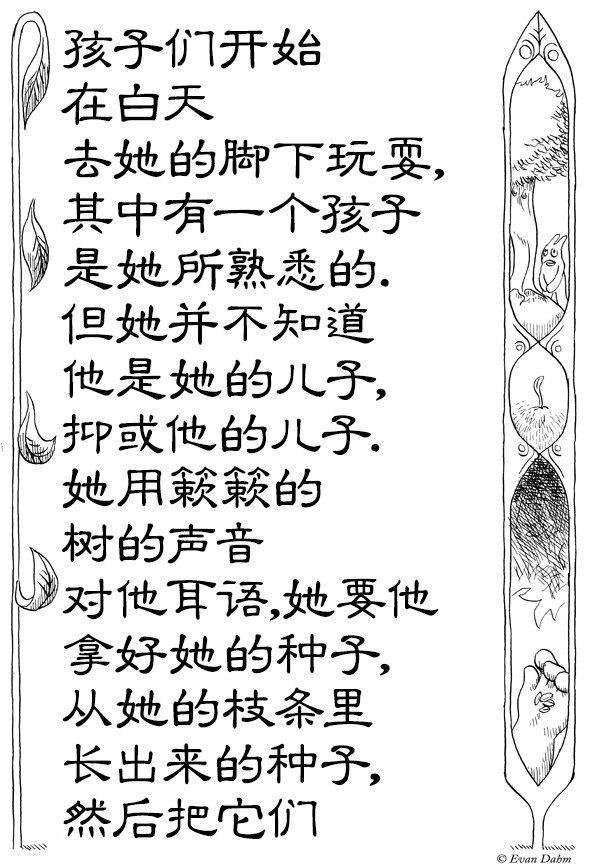 孩子们开始
在白天
去她的脚下玩耍,
其中有一个孩子
是她所熟悉的.
但她并不知道
他是她的儿子,
抑或他的儿子.
她用簌簌的
树的声音
对他耳语,她要他
拿好她的种子,
从她的枝条里
长出来的种子,
然后把它们
© Evan Dahm